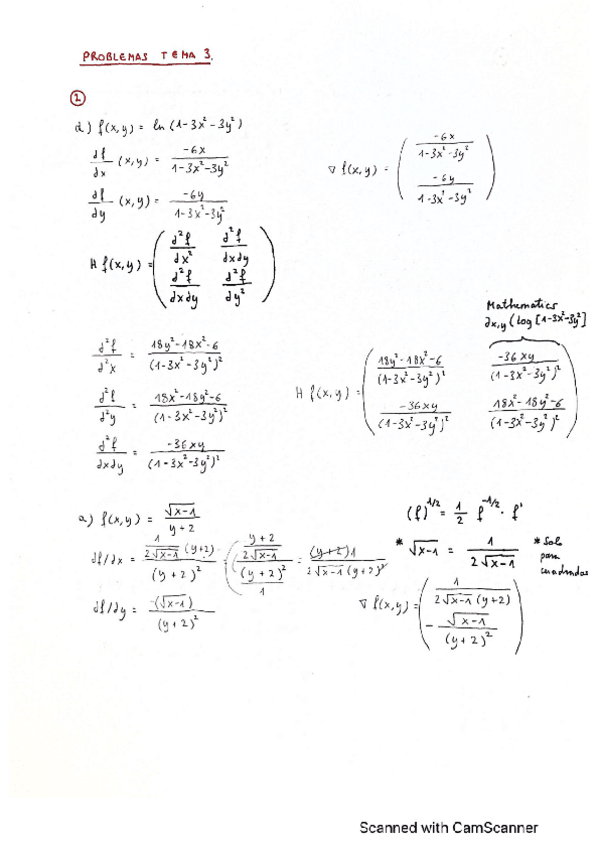 PROBLEMAS TEMA 3.
①
d) f(x,y) = ln (1-3x²-3y²)
df/dx (x,y) = -6x / (1-3x²-3y²)
∇ f(x,y) = ( -6x / (1-3x²-3y²) ; -6y / (1-3x²-3y²) )
df/dy (x,y) = -6y / (1-3x²-3y²)
H f(x,y) = ( d²f/dx² d²f/dxdy ; d²f/dxdy d²f/dy² )
Mathematics
∂x,y (Log [1-3x²-3y²]
d²f/d²x = 18y²-18x²-6 / (1-3x²-3y²)²
H f(x,y) = ( 18y²-18x²-6 / (1-3x²-3y²)² -36xy / (1-3x²-3y²)² ; -36xy / (1-3x²-3y²)² 18x²-18y²-6 / (1-3x²-3y²)² )
d²f/d²y = 18x²-18y²-6 / (1-3x²-3y²)²
d²f/dxdy = -36xy / (1-3x²-3y²)²
a) f(x,y) = √x-1 / y+2
(f)^1/2 = 1/2 f^-1/2 · f'
df/dx = 1/2√x-1 (y+2) / (y+2)² = ( y+2 / 2√x-1 ) / ( (y+2)² / 1 ) = (y+2)1 / 2√x-1 (y+2)²
* √x-1 = 1 / 2√x-1
* Solo para cuadradas
df/dy = -(√x-1) / (y+2)²
∇ f(x,y) = ( 1 / 2√x-1 (y+2) ; - √x-1 / (y+2)² )
Scanned with CamScanner